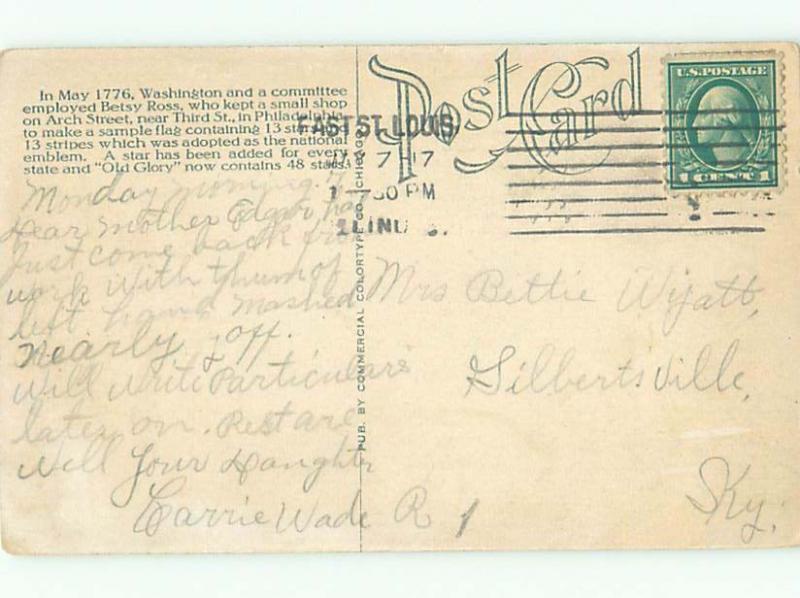 In May 1776, Washington and a committee
employed Betsy Ross, who kept a small shop
on Arch Street, near Third St., in Philadelphia
to make a sample flag containing 13 stars and
13 stripes which was adopted as the national
emblem. A star has been added for every
state and "Old Glory" now contains 48 stars.
Post Card
U.S. POSTAGE
1 CENT 1
EAST ST. LOUIS,
7 17
1 30 PM
ILLINOIS.
Monday morning
Dear Mother Edgar has
Just come back from
work with thum of
left hand mashed
nearly off.
Will write Particulars
later on. Rest are
well Your Daughter
Carrie Wade R 1
PUB. BY COMMERCIAL COLORTYPE CO., CHICAGO
Mrs Bettie Wyatt,
Gilbertsville,
Ky.